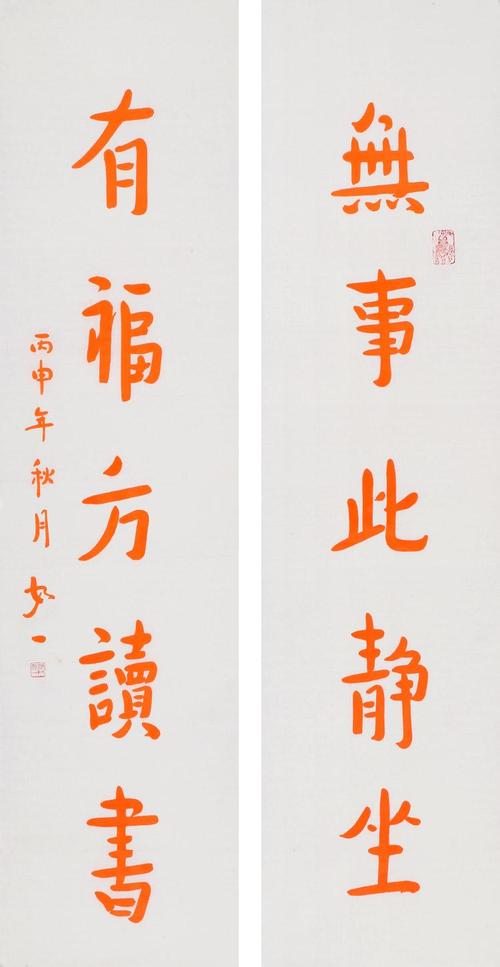 無事此静坐
有福方讀書
丙申年秋月
如一